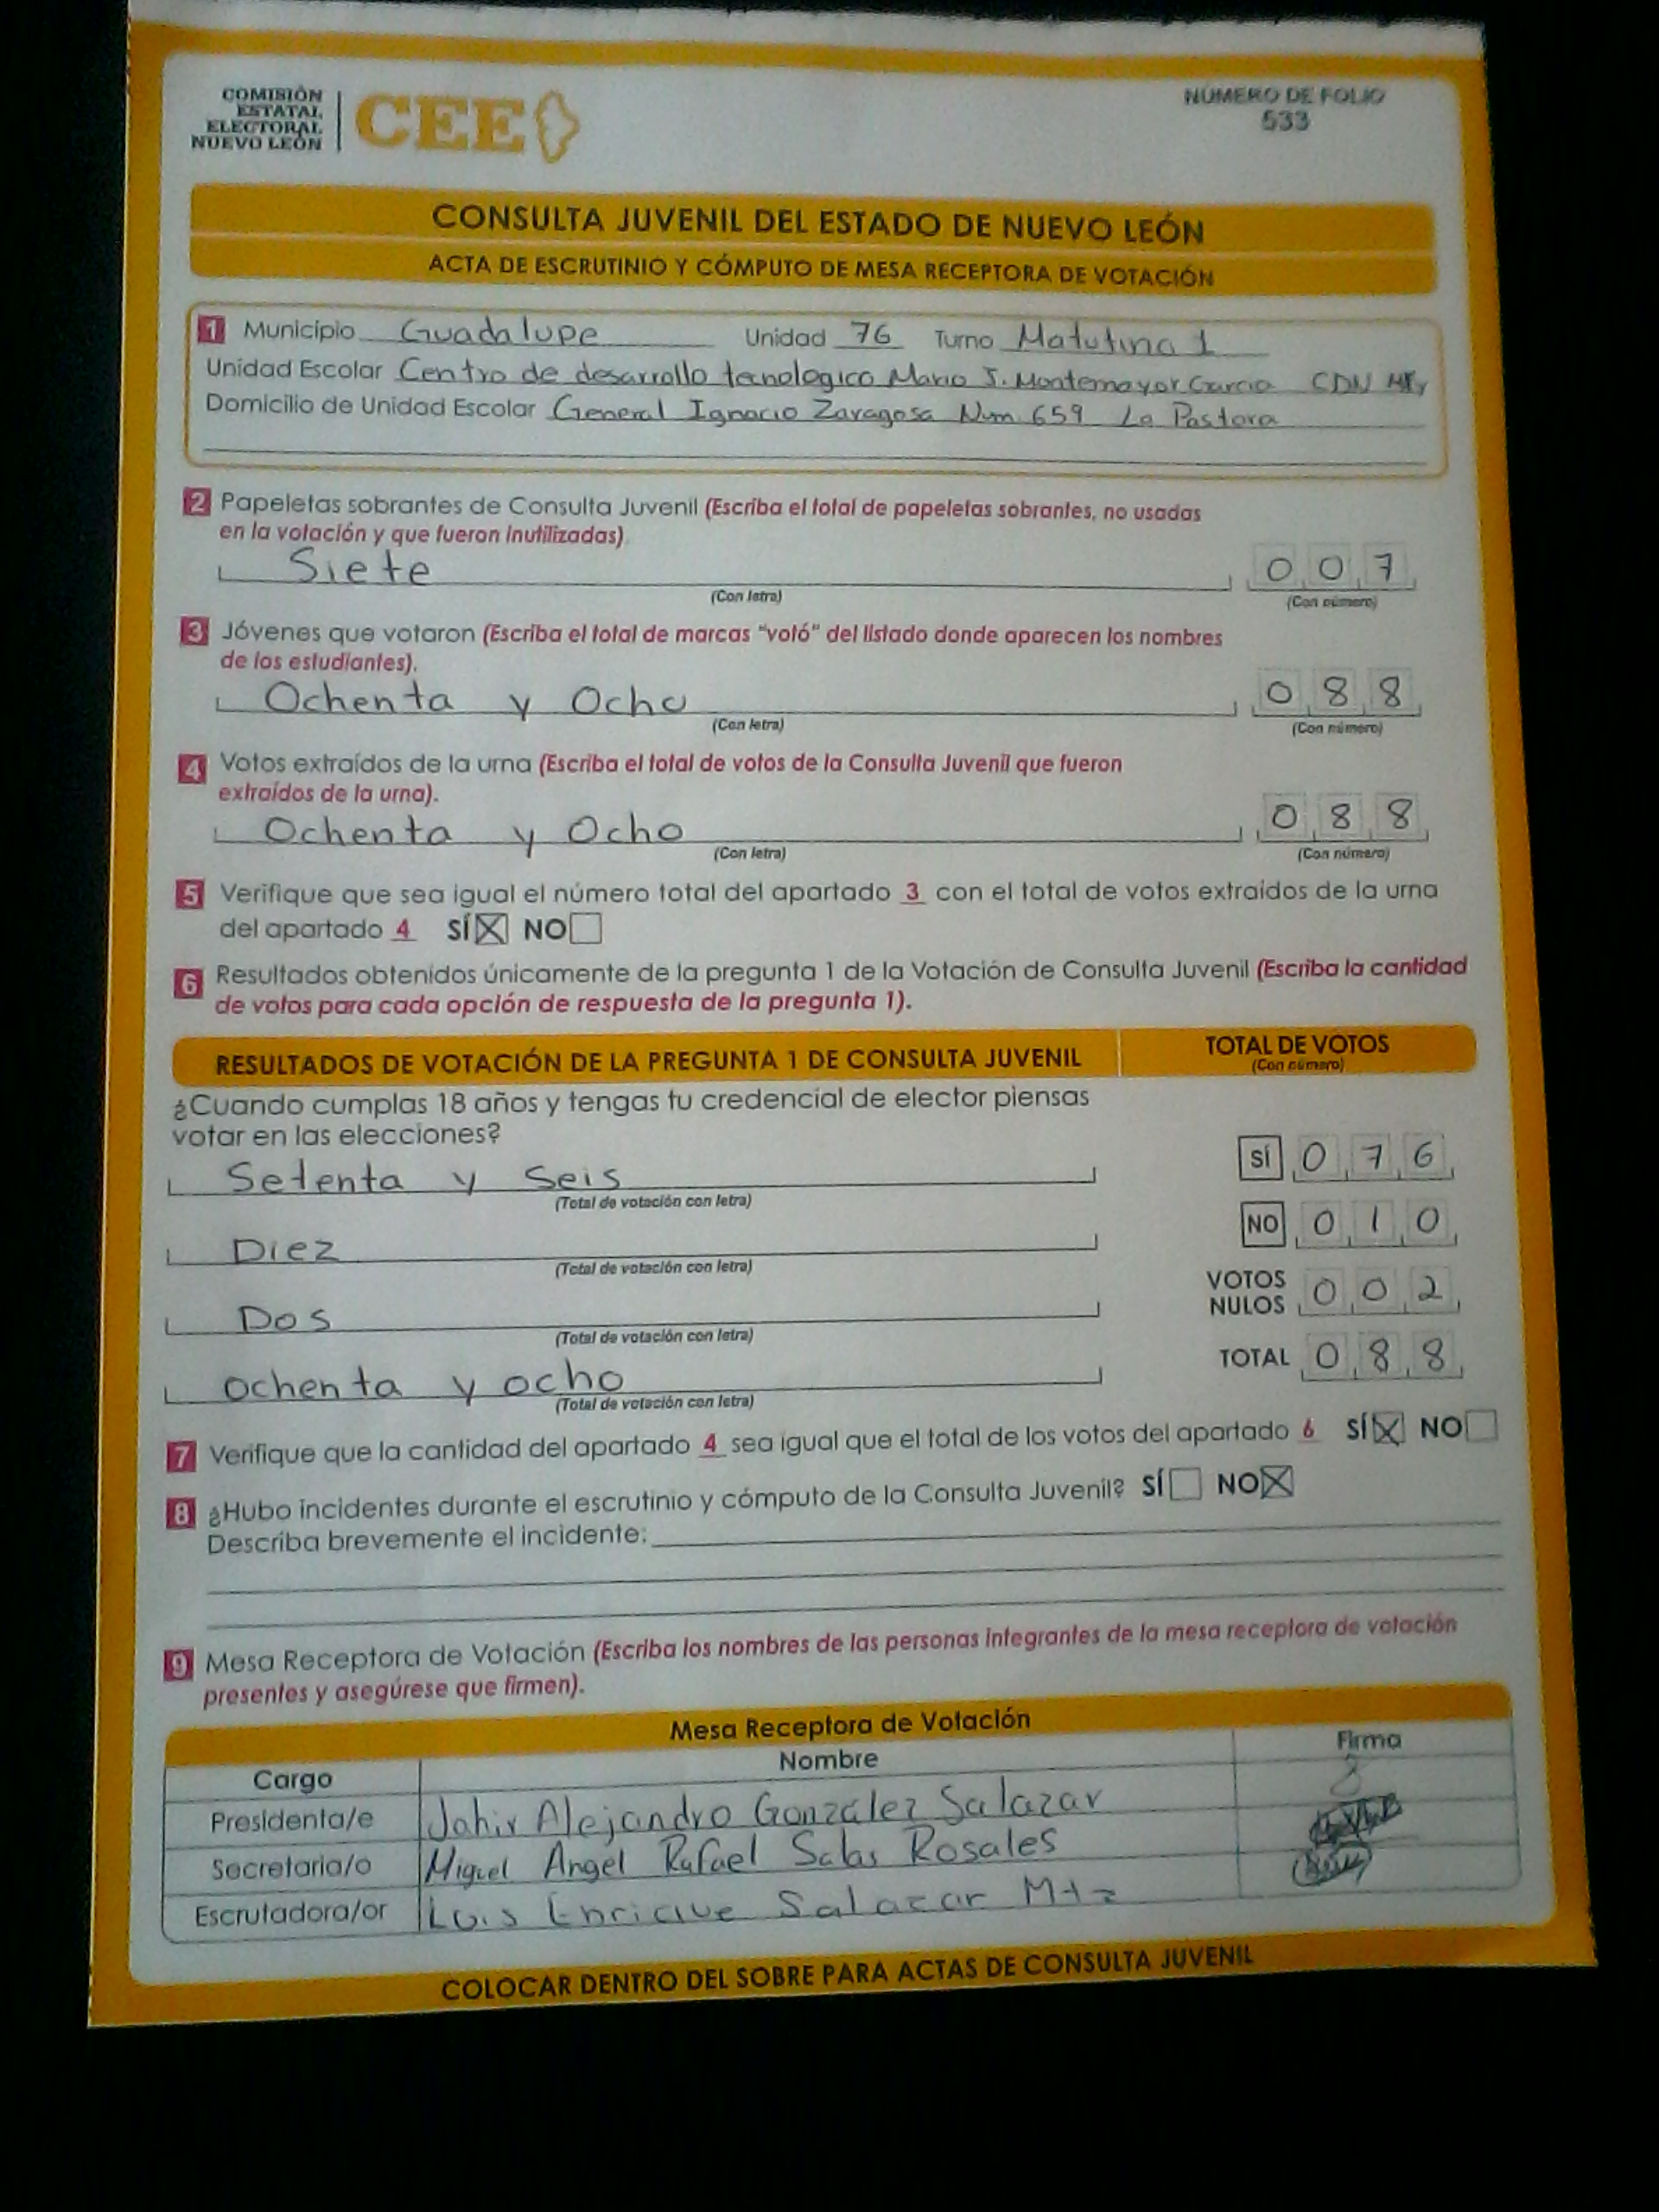 COMISIÓN
ESTATAL
ELECTORAL
NUEVO LEÓN
CEE
NÚMERO DE FOLIO
533
CONSULTA JUVENIL DEL ESTADO DE NUEVO LEÓN
ACTA DE ESCRUTINIO Y CÓMPUTO DE MESA RECEPTORA DE VOTACIÓN
1 Municipio Guadalupe Unidad 76 Turno Matutina 1
Unidad Escolar Centro de desarrollo tecnologico Mario J. Montemayor Garcia CDN
Domicilio de Unidad Escolar General Ignacio Zaragosa Num. 659 La Pastora
2 Papeletas sobrantes de Consulta Juvenil (Escriba el total de papeletas sobrantes, no usadas
en la votación y que fueron inutilizadas).
Siete 0 0 7
(Con letra) (Con número)
3 Jóvenes que votaron (Escriba el total de marcas "votó" del listado donde aparecen los nombres
de los estudiantes).
Ochenta y Ocho 0 8 8
(Con letra) (Con número)
4 Votos extraídos de la urna (Escriba el total de votos de la Consulta Juvenil que fueron
extraídos de la urna).
Ochenta y Ocho 0 8 8
(Con letra) (Con número)
5 Verifique que sea igual el número total del apartado 3 con el total de votos extraídos de la urna
del apartado 4 SÍ NO
6 Resultados obtenidos únicamente de la pregunta 1 de la Votación de Consulta Juvenil (Escriba la cantidad
de votos para cada opción de respuesta de la pregunta 1).
RESULTADOS DE VOTACIÓN DE LA PREGUNTA 1 DE CONSULTA JUVENIL TOTAL DE VOTOS
(Con número)
¿Cuando cumplas 18 años y tengas tu credencial de elector piensas
votar en las elecciones?
Setenta y Seis SÍ 0 7 6
(Total de votación con letra)
Diez NO 0 1 0
(Total de votación con letra)
Dos VOTOS NULOS 0 0 2
(Total de votación con letra)
ochenta y ocho TOTAL 0 8 8
(Total de votación con letra)
7 Verifique que la cantidad del apartado 4 sea igual que el total de los votos del apartado 6 SÍ NO
8 ¿Hubo incidentes durante el escrutinio y cómputo de la Consulta Juvenil? SÍ NO
Describa brevemente el incidente:
9 Mesa Receptora de Votación (Escriba los nombres de las personas integrantes de la mesa receptora de votación
presentes y asegúrese que firmen).
Mesa Receptora de Votación
Cargo Nombre Firma
Presidenta/e Jahir Alejandro González Salazar
Secretaria/o Miguel Angel Rafael Salas Rosales
Escrutadora/or Luis Enrique Salazar Mtz
COLOCAR DENTRO DEL SOBRE PARA ACTAS DE CONSULTA JUVENIL